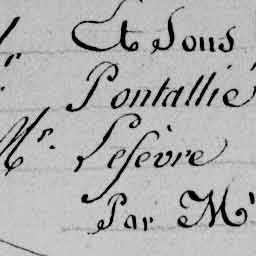 Et Sous
Pontallié
Mr. Lefèvre
Par Mr